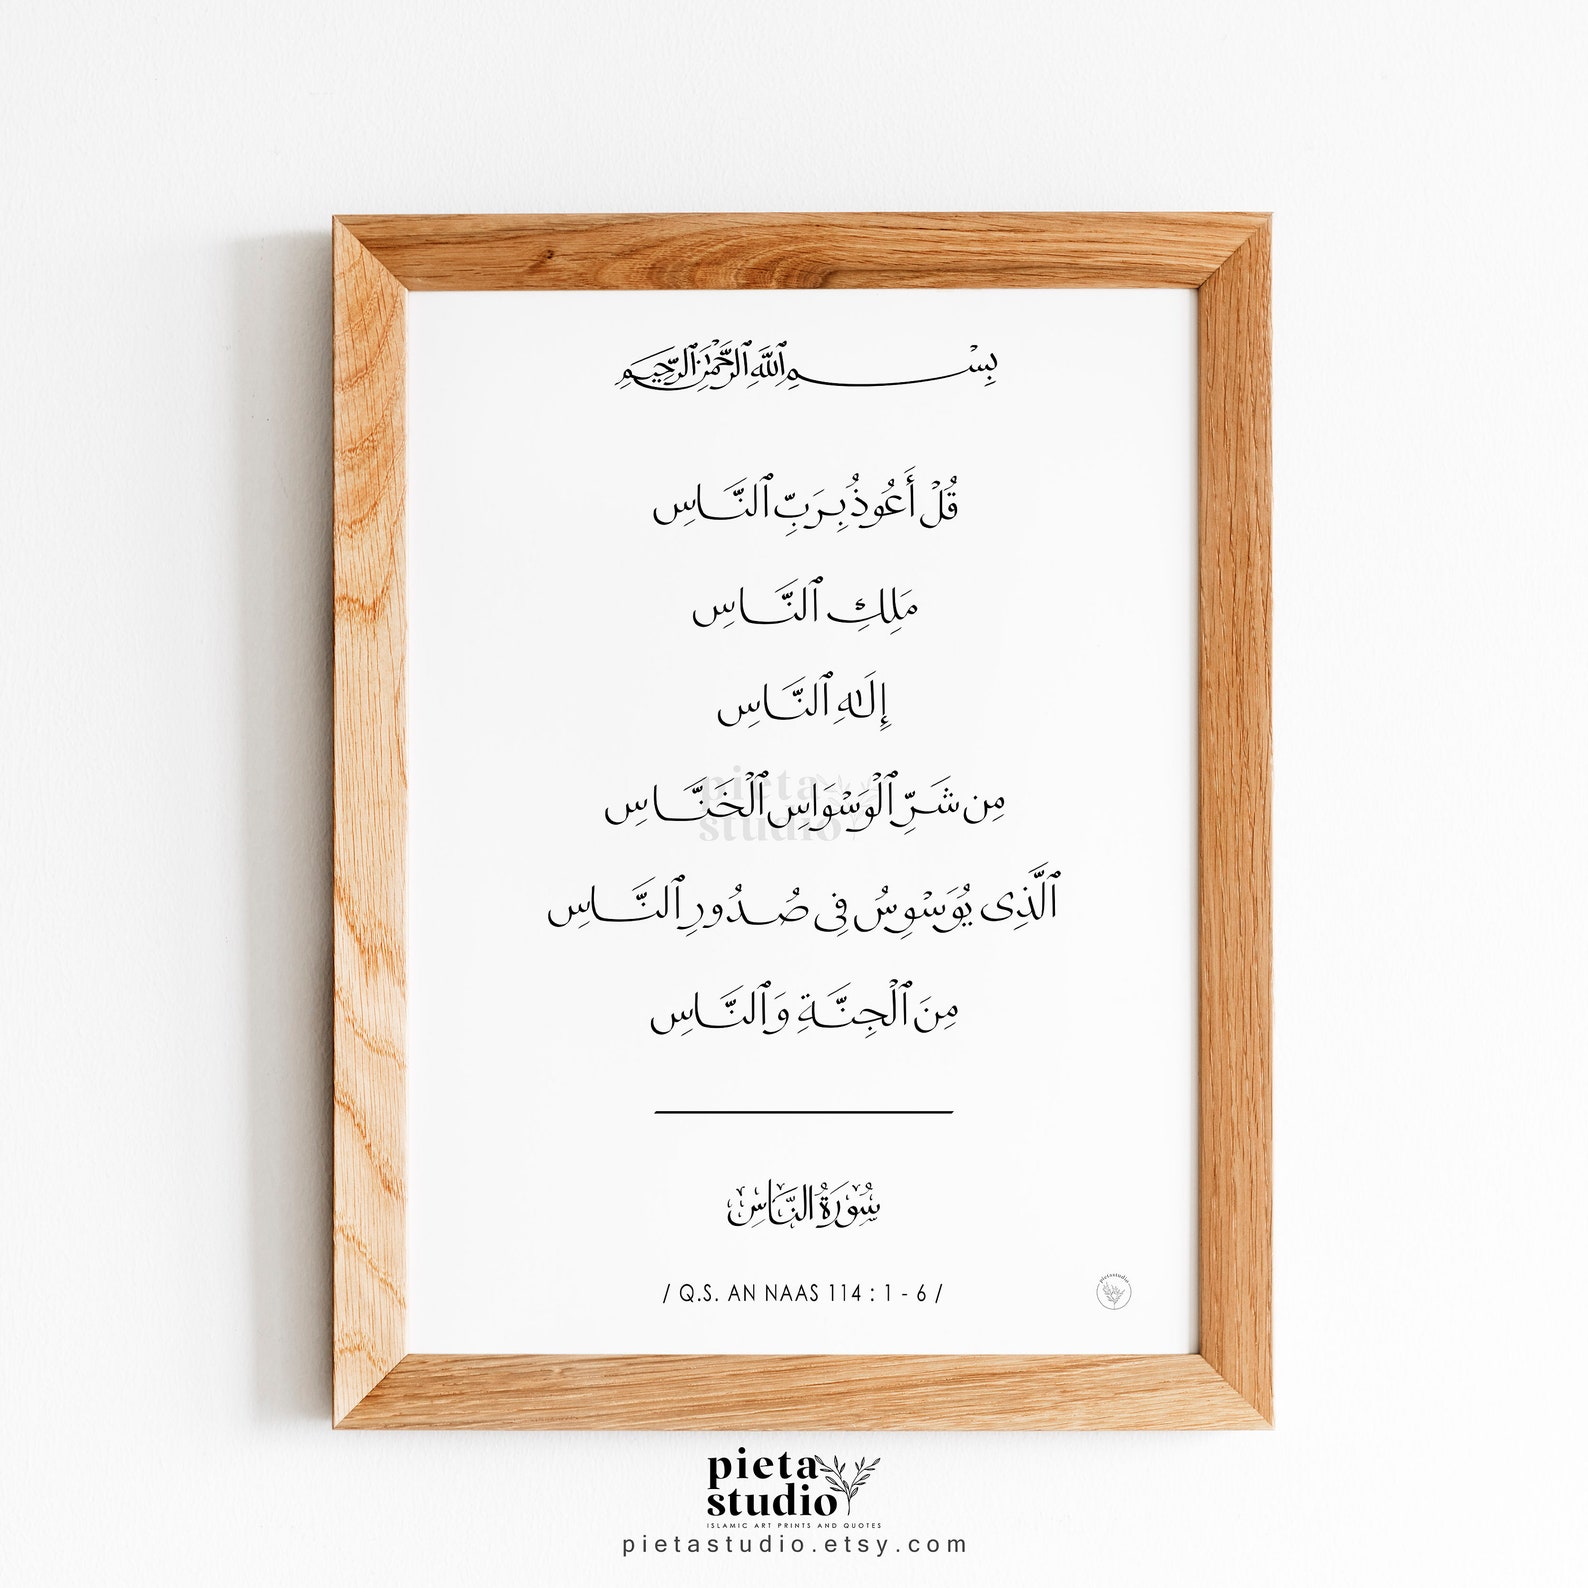 بِسْمِ ٱللَّهِ ٱلرَّحْمَٰنِ ٱلرَّحِيمِ
قُلْ أَعُوذُ بِرَبِّ ٱلنَّاسِ
مَلِكِ ٱلنَّاسِ
إِلَٰهِ ٱلنَّاسِ
مِن شَرِّ ٱلْوَسْوَاسِ ٱلْخَنَّاسِ
ٱلَّذِى يُوَسْوِسُ فِى صُدُورِ ٱلنَّاسِ
مِنَ ٱلْجِنَّةِ وَٱلنَّاسِ
pieta
studio
سُوْرَةُ النَّاسِ
/ Q.S. AN NAAS 114 : 1 - 6 /
pietastudio
pieta
studio
ISLAMIC ART PRINTS AND QUOTES
pietastudio.etsy.com